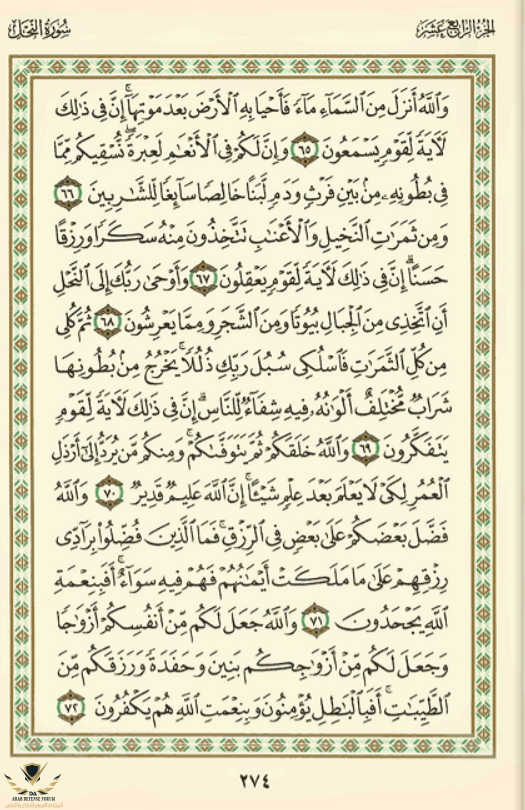 سُورَةُ النَّحْلِ
الجُزْءُ الرَّابِعَ عَشَرَ
وَاللَّهُ أَنزَلَ مِنَ السَّمَاءِ مَاءً فَأَحْيَا بِهِ الْأَرْضَ بَعْدَ مَوْتِهَا ۚ إِنَّ فِي ذَٰلِكَ
لَآيَةً لِّقَوْمٍ يَسْمَعُونَ ٦٥ وَإِنَّ لَكُمْ فِي الْأَنْعَامِ لَعِبْرَةً ۖ نُّسْقِيكُم مِّمَّا
فِي بُطُونِهِ مِن بَيْنِ فَرْثٍ وَدَمٍ لَّبَنًا خَالِصًا سَائِغًا لِّلشَّارِبِينَ ٦٦
وَمِن ثَمَرَاتِ النَّخِيلِ وَالْأَعْنَابِ تَتَّخِذُونَ مِنْهُ سَكَرًا وَرِزْقًا
حَسَنًا ۗ إِنَّ فِي ذَٰلِكَ لَآيَةً لِّقَوْمٍ يَعْقِلُونَ ٦٧ وَأَوْحَىٰ رَبُّكَ إِلَى النَّحْلِ
أَنِ اتَّخِذِي مِنَ الْجِبَالِ بُيُوتًا وَمِنَ الشَّجَرِ وَمِمَّا يَعْرِشُونَ ٦٨ ثُمَّ كُلِي
مِن كُلِّ الثَّمَرَاتِ فَاسْلُكِي سُبُلَ رَبِّكِ ذُلُلًا ۚ يَخْرُجُ مِن بُطُونِهَا
شَرَابٌ مُّخْتَلِفٌ أَلْوَانُهُ فِيهِ شِفَاءٌ لِّلنَّاسِ ۗ إِنَّ فِي ذَٰلِكَ لَآيَةً لِّقَوْمٍ
يَتَفَكَّرُونَ ٦٩ وَاللَّهُ خَلَقَكُمْ ثُمَّ يَتَوَفَّاكُمْ ۚ وَمِنكُم مَّن يُرَدُّ إِلَىٰ أَرْذَلِ
الْعُمُرِ لِكَيْ لَا يَعْلَمَ بَعْدَ عِلْمٍ شَيْئًا ۚ إِنَّ اللَّهَ عَلِيمٌ قَدِيرٌ ٧٠ وَاللَّهُ
فَضَّلَ بَعْضَكُمْ عَلَىٰ بَعْضٍ فِي الرِّزْقِ ۚ فَمَا الَّذِينَ فُضِّلُوا بِرَادِّي
رِزْقِهِمْ عَلَىٰ مَا مَلَكَتْ أَيْمَانُهُمْ فَهُمْ فِيهِ سَوَاءٌ ۚ أَفَبِنِعْمَةِ
اللَّهِ يَجْحَدُونَ ٧١ وَاللَّهُ جَعَلَ لَكُم مِّنْ أَنفُسِكُمْ أَزْوَاجًا
وَجَعَلَ لَكُم مِّنْ أَزْوَاجِكُم بَنِينَ وَحَفَدَةً وَرَزَقَكُم مِّنَ
الطَّيِّبَاتِ ۚ أَفَبِالْبَاطِلِ يُؤْمِنُونَ وَبِنِعْمَتِ اللَّهِ هُمْ يَكْفُرُونَ ٧٢
٢٧٤
DA
ARAB DEFENSE FORUM